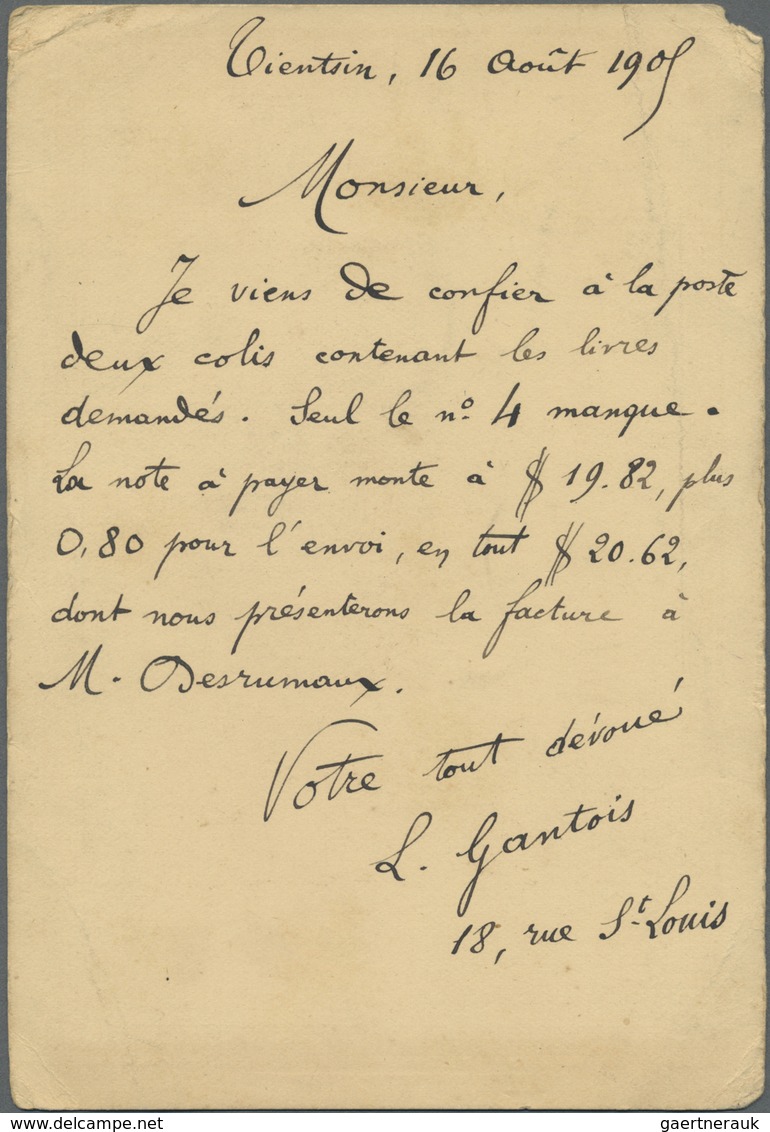 Tientsin, 16 Août 1905
Monsieur,
Je viens de confier à la poste
deux colis contenant les livres
demandés. Seul le nº 4 manque.
La note à payer monte à $ 19.82, plus
0,80 pour l'envoi, en tout $ 20.62,
dont nous présenterons la facture à
M. Desrumaux.
Votre tout dévoué
L. Gantois
18, rue St. Louis
delcampe.net
gaertnerauk